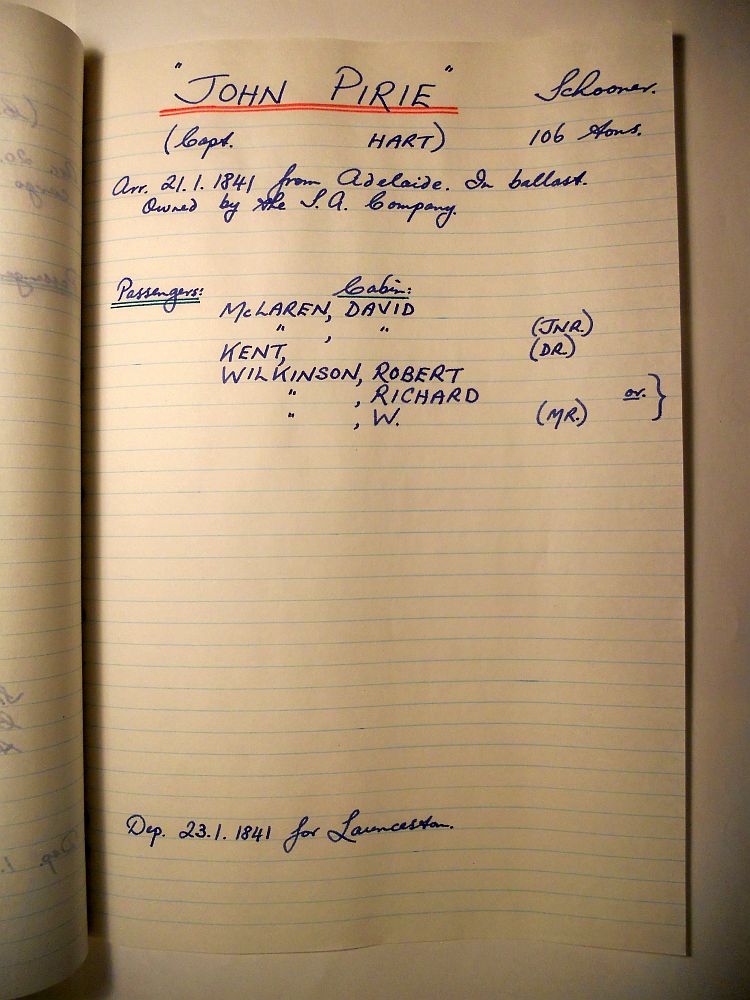 "JOHN PIRIE" Schooner.
(Capt. HART) 106 tons.
Arr. 21.1.1841 from Adelaide. In ballast.
Owned by the S.A. Company.
Passengers: Cabin:
McLAREN, DAVID
" , " (JNR.)
KENT, (DR.)
WILKINSON, ROBERT
" , RICHARD or. }
" , W. (MR.)
Dep. 23.1.1841 for Launceston.